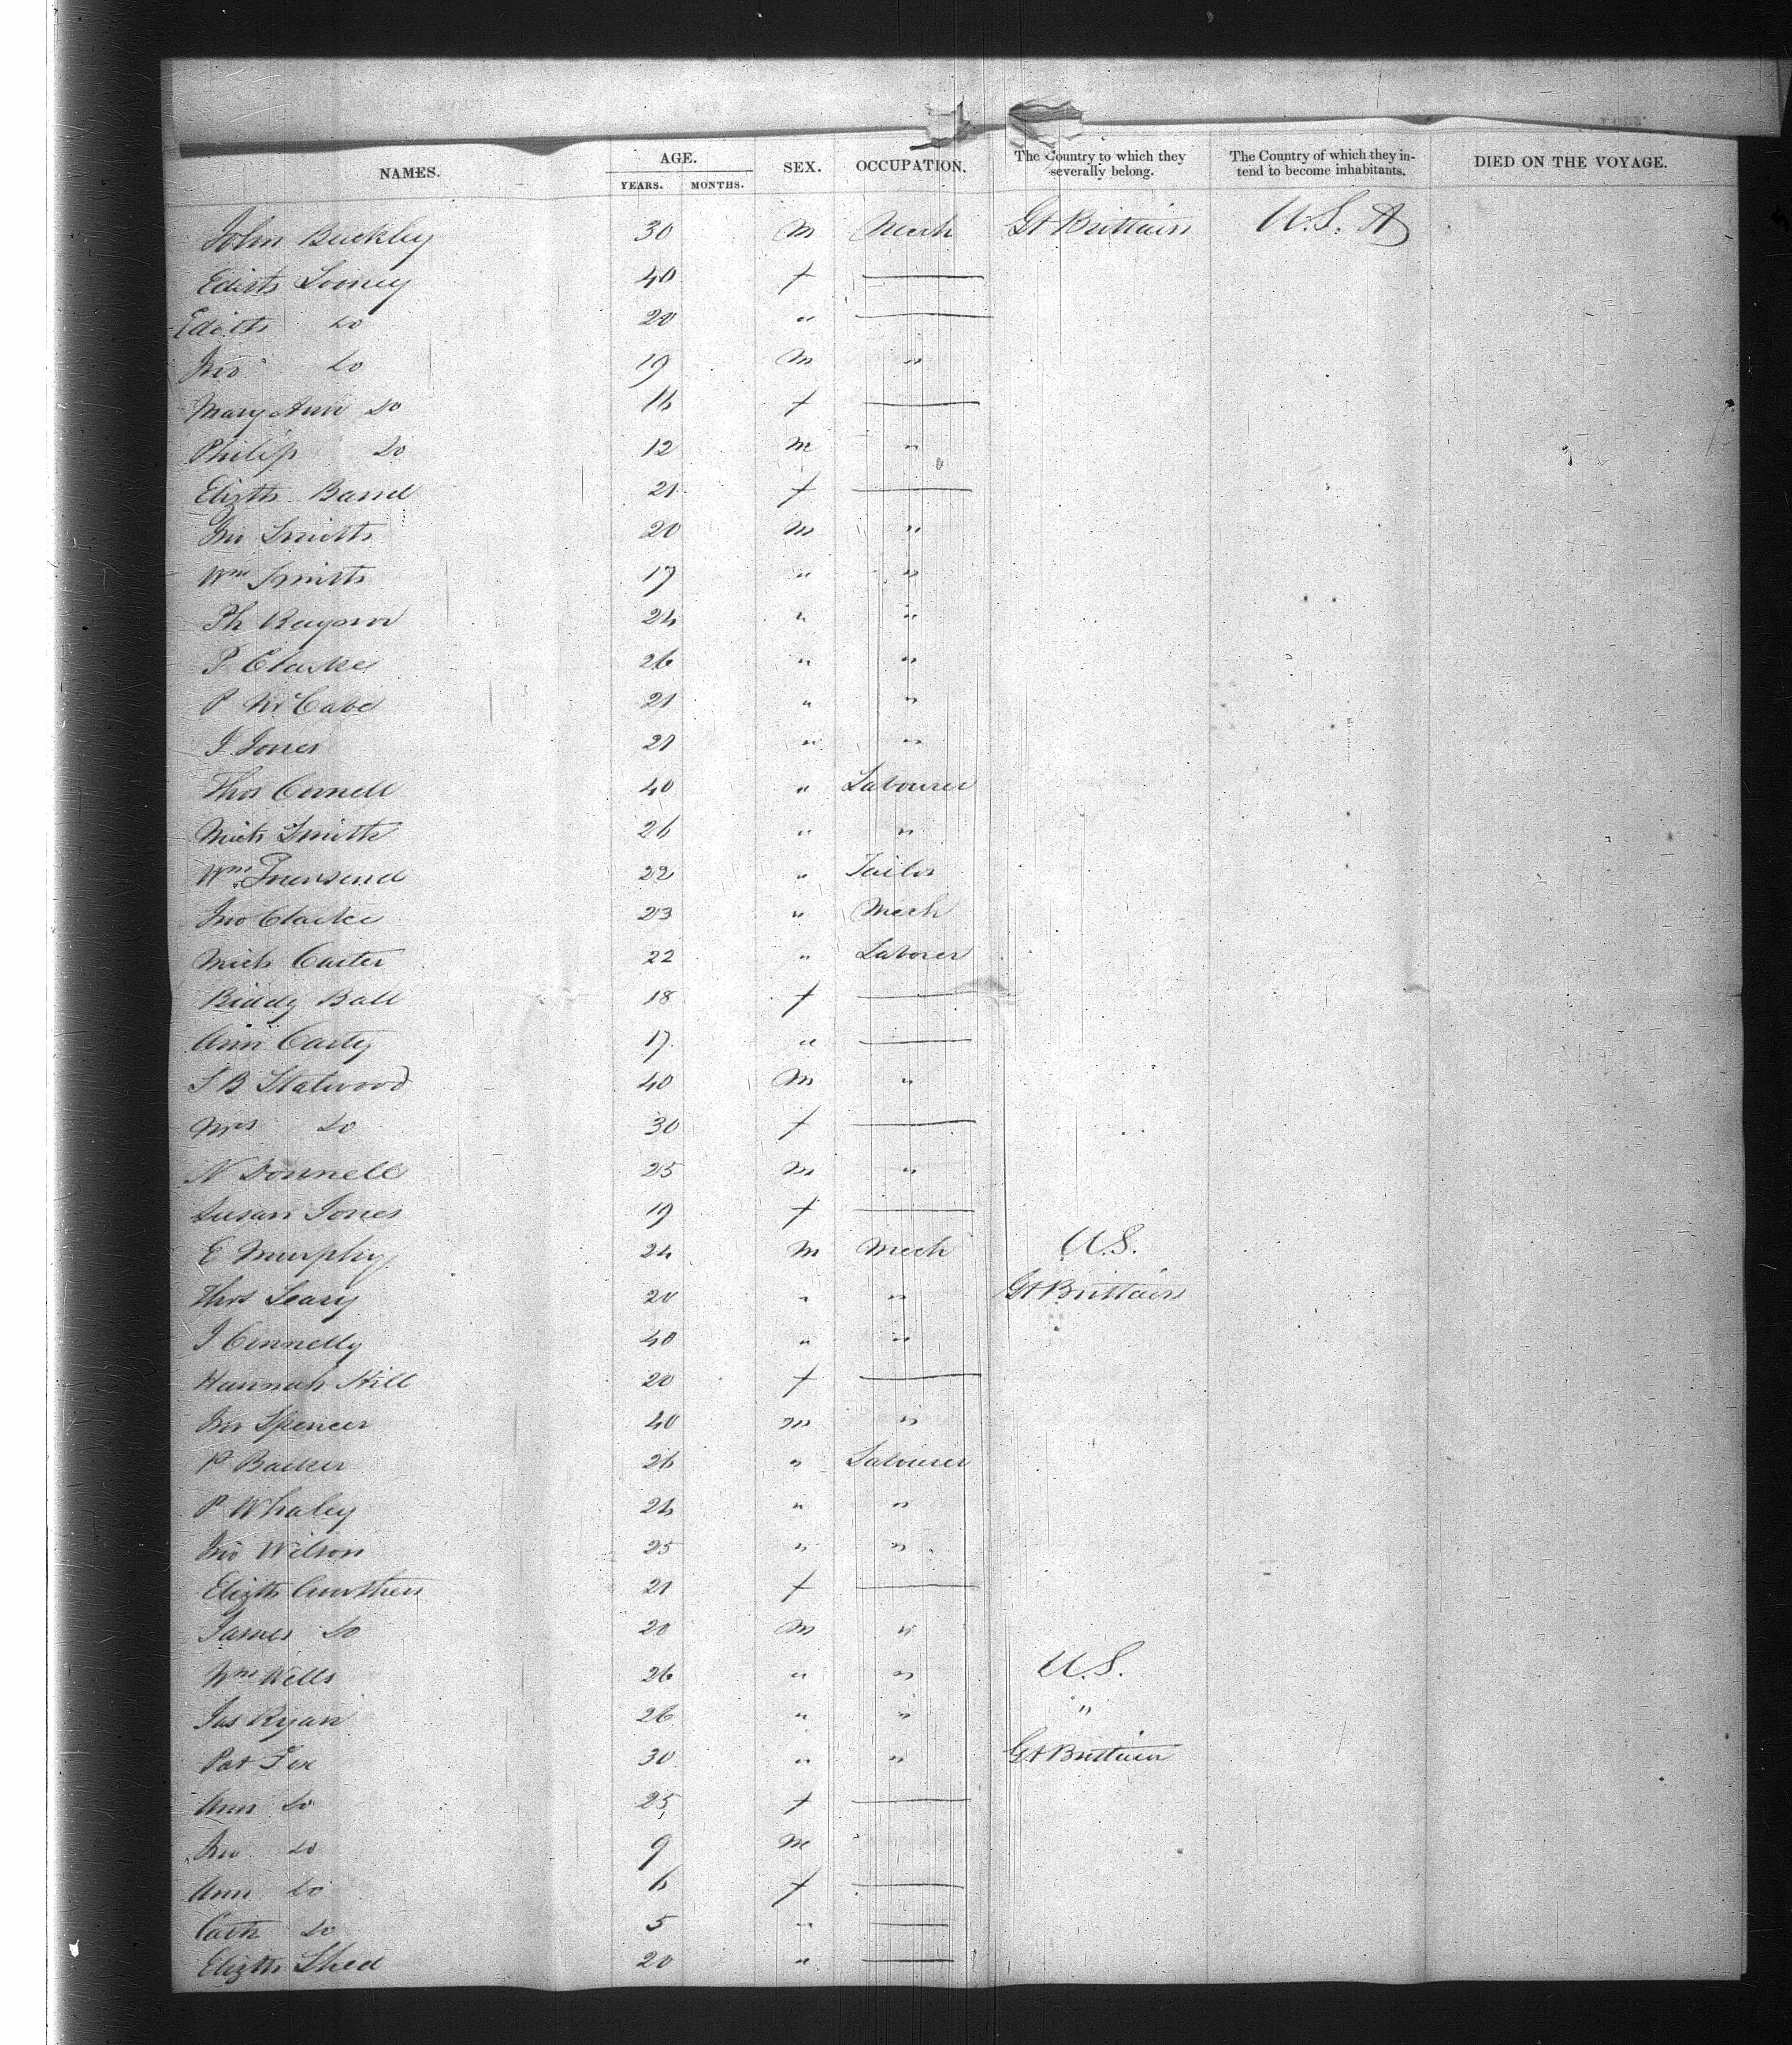 NAMES. AGE. SEX. OCCUPATION. The Country to which they severally belong. The Country of which they intend to become inhabitants. DIED ON THE VOYAGE.
YEARS. MONTHS.
John Buckley 30 M Mech Gt Brittain U.S. A
Edith Looney 40 f
Edith Do 20 "
Jno Do 19 M "
Mary Ann Do 16 f
Philip Do 12 M "
Elizth Band 21 f
Jno Smith 20 M "
Wm Smith 17 " "
Th 24 " "
P Clarke 26 " "
P McCabe 21 " "
J Jones 21 " "
Thos Connell 40 " Labourer
Mich Smith 26 " "
Wm Townsend 22 " Tailor
Jno Clarke 23 " Mech
Mich Carter 22 " Laborer
Biddy Ball 18 f
Ann Carty 17 "
S B Statwood 40 M "
Mrs Do 30 f
N Donnell 25 M "
Susan Jones 19 f
E Murphy 24 M Mech U.S.
Thos Leary 20 " " Gt Brittain
J Connelly 40 " "
Hannah Hill 20 f
Jno Spencer 40 M "
P Barker 26 " Labourer
P Whaley 24 " "
Jno Wilson 25 " "
Elizth 21 f
James Do 20 M "
Wm Wells 26 " " U.S.
Jas Ryan 26 " " "
Pat Fox 30 " " Gt Brittain
Ann Do 25 f
Jno Do 9 M
Ann Do 6 f
Cath Do 5 "
Elizth Shed 20 "